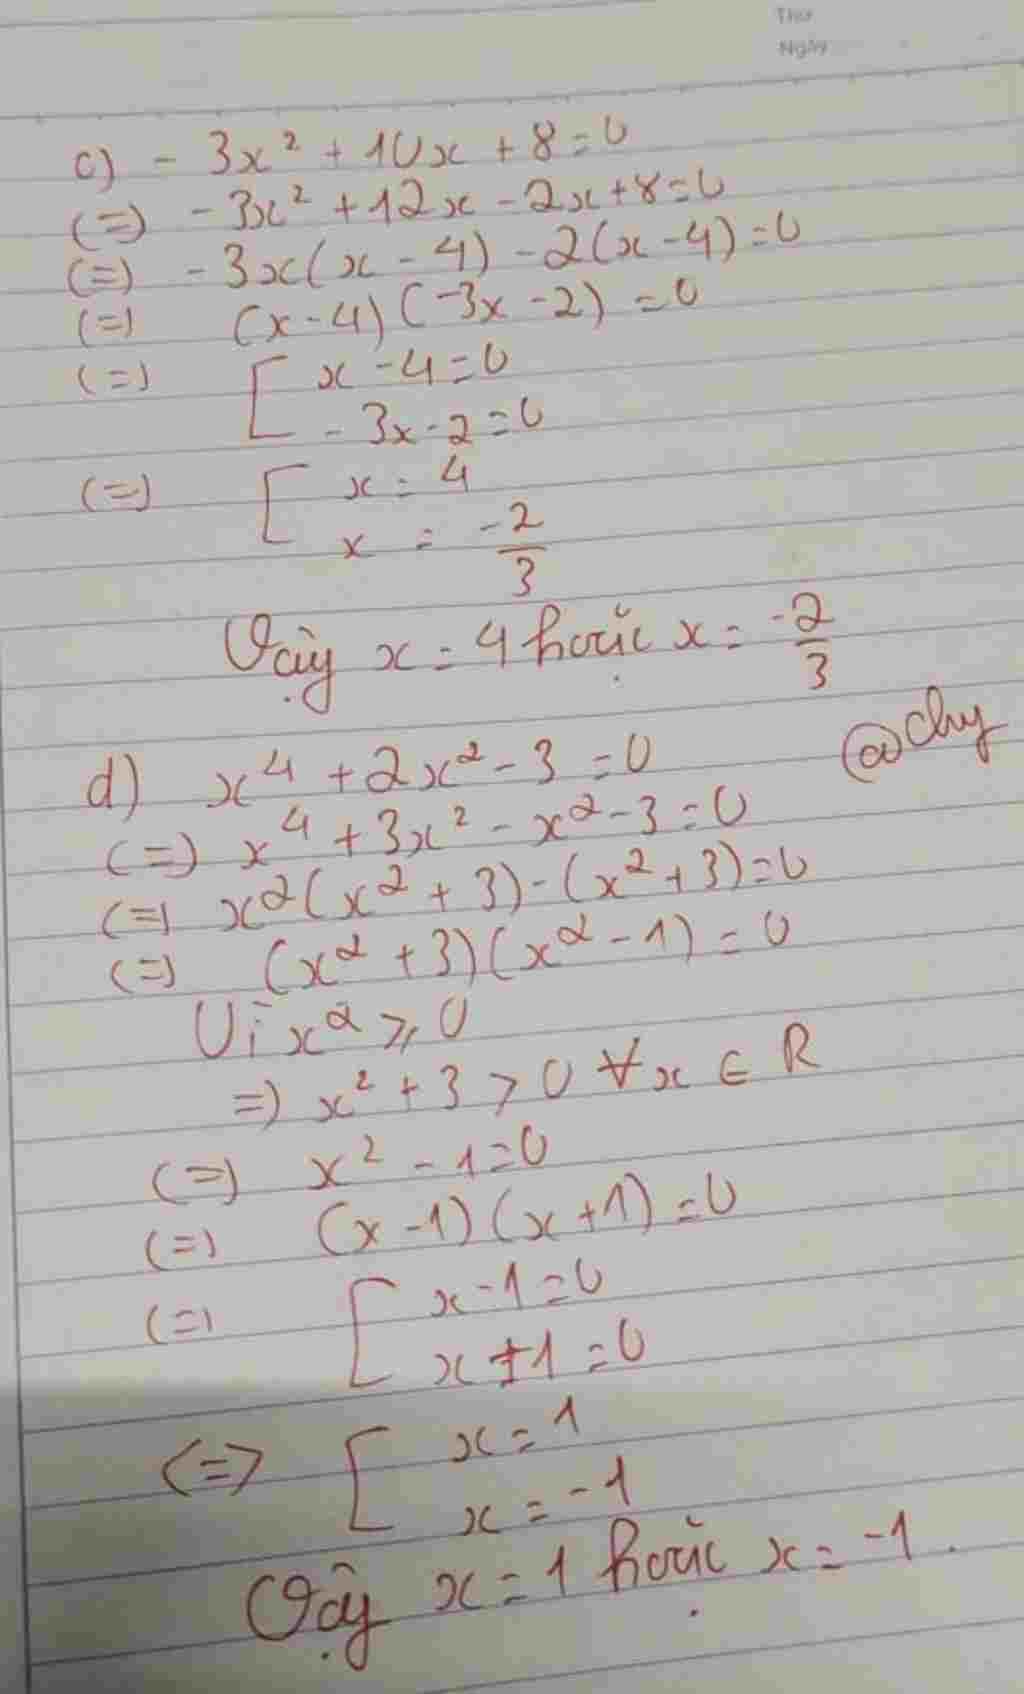 Thứ
Ngày
c) - 3x² + 10x + 8 = 0
(=) - 3x² + 12x - 2x + 8 = 0
(=) - 3x(x - 4) - 2(x - 4) = 0
(=) (x - 4)(-3x - 2) = 0
(=) [ x - 4 = 0
- 3x - 2 = 0
(=) [ x = 4
x = -2/3
Vậy x = 4 hoặc x = -2/3
@chy
d) x⁴ + 2x² - 3 = 0
(=) x⁴ + 3x² - x² - 3 = 0
(=) x²(x² + 3) - (x² + 3) = 0
(=) (x² + 3)(x² - 1) = 0
Vì x² ⩾ 0
=) x² + 3 > 0 ∀x ∈ R
(=) x² - 1 = 0
(=) (x - 1)(x + 1) = 0
(=) [ x - 1 = 0
x + 1 = 0
<=> [ x = 1
x = -1
Vậy x = 1 hoặc x = -1.